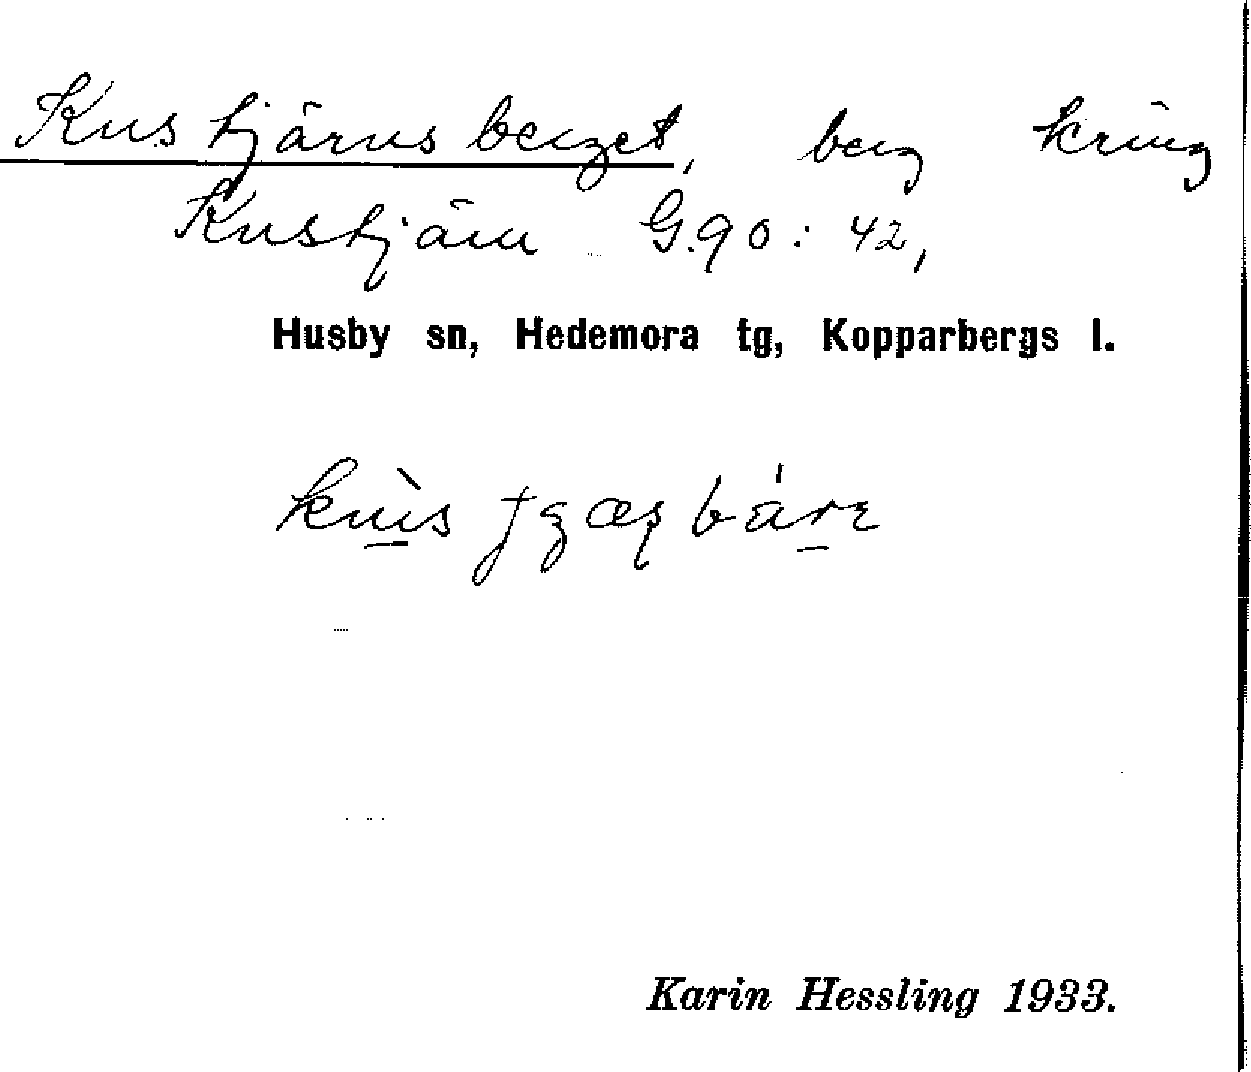 Kustjärnsberget, berg kring
Kustjärn G.90:42,
Husby sn, Hedemora tg, Kopparbergs l.
Karin Hessling 1933.